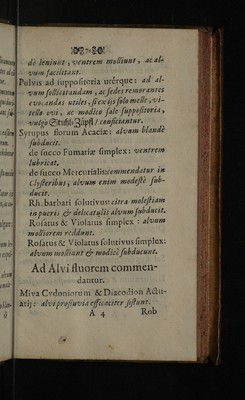 7
dè leniunt, ventrem molliunt, ac al-
vum facilitant.
Pulvis ad suppositoria utérque: ad al-
vum sollicitandam, ac sedes remorantes
evocandas utiles, si ex ijs solo melle, vi-
tello ovi, ac modico sale suppositoria,
vulgo Stuhl-Zäpfl / conficiantur.
Syrupus florum Acaciæ: alvum blandè
subducit.
de succo Fumariæ simplex: ventrem
lubricat.
de succo Mercurialis: commendatur in
Clysteribus, alvum enim modestè sub-
ducit.
Rh. barbari solutivus: citra molestiam
in pueris & delicatulis alvum subducit.
Rosatus & Violatus simplex: alvum
molliorem reddunt.
Rosatus & Violatus solutivus simplex:
alvum molliunt & modicè subducunt.
Ad Alvi fluorem commen-
dantur.
Miva Cydoniorum & Diacodion Actu-
arij: alvi profluvia efficaciter sistunt.
A 4 Rob